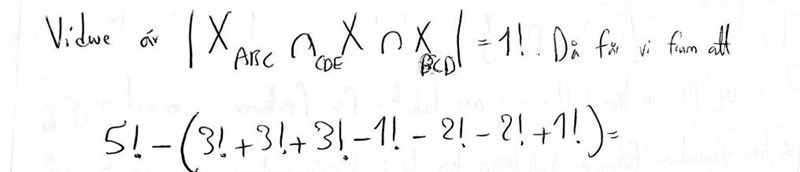 Vidwe är |X_ABC ∩ _CDE X ∩ X_BCD| = 1!. Då får vi fram att
5! - (3! + 3! + 3! - 1! - 2! - 2! + 1!) =